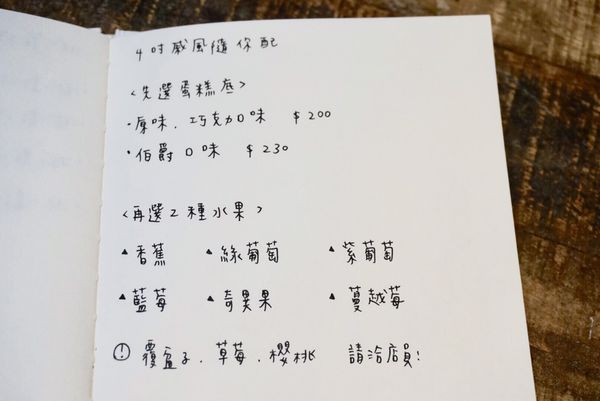 4吋戚風隨你配
<先選蛋糕底>
·原味、巧克力口味 $200
·伯爵口味 $230
<再選2種水果>
▲香蕉 ▲綠葡萄 ▲紫葡萄
▲藍莓 ▲奇異果 ▲蔓越莓
! 覆盆子、草莓、櫻桃 請洽店員!